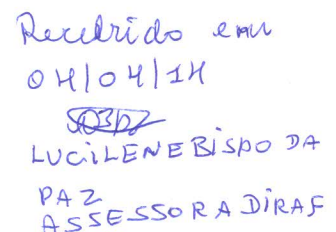 Recebido em
04/04/14
LUCILENE BISPO DA
PAZ
ASSESSORA DIRAF